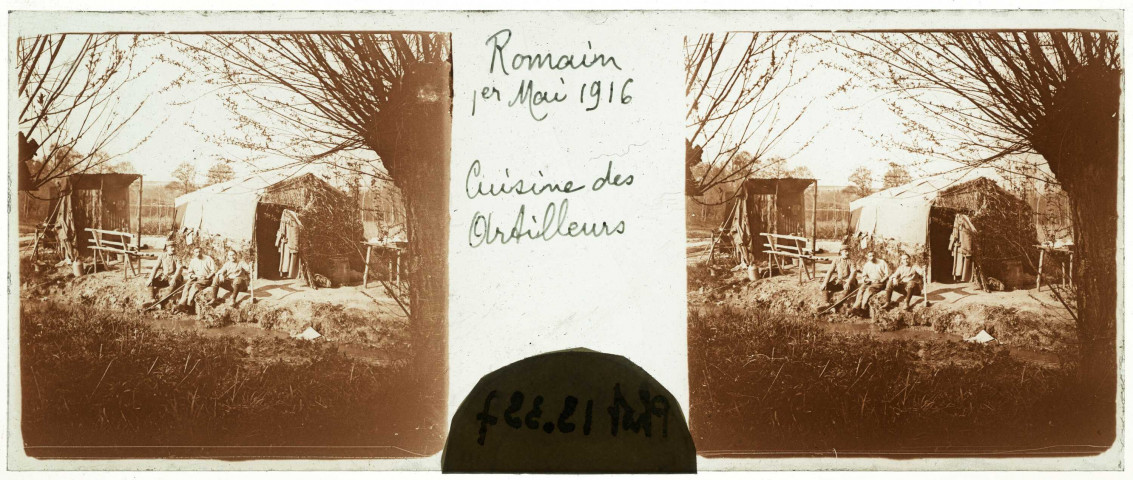 Romain
1er Mai 1916
Cuisine des
Artilleurs
Phot 12.337